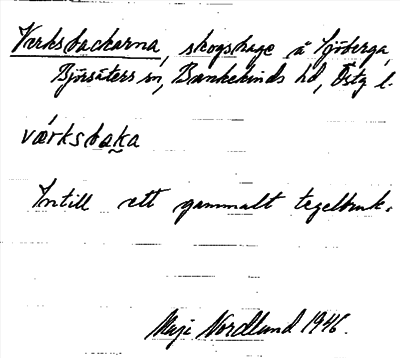 Verksbackarna, skogshage å Sjöberga,
Björsäters sn, Bankekinds hd, Östg l.
värksbaka
Intill ett gammalt tegelbruk.
Maji Nordlund 1946.